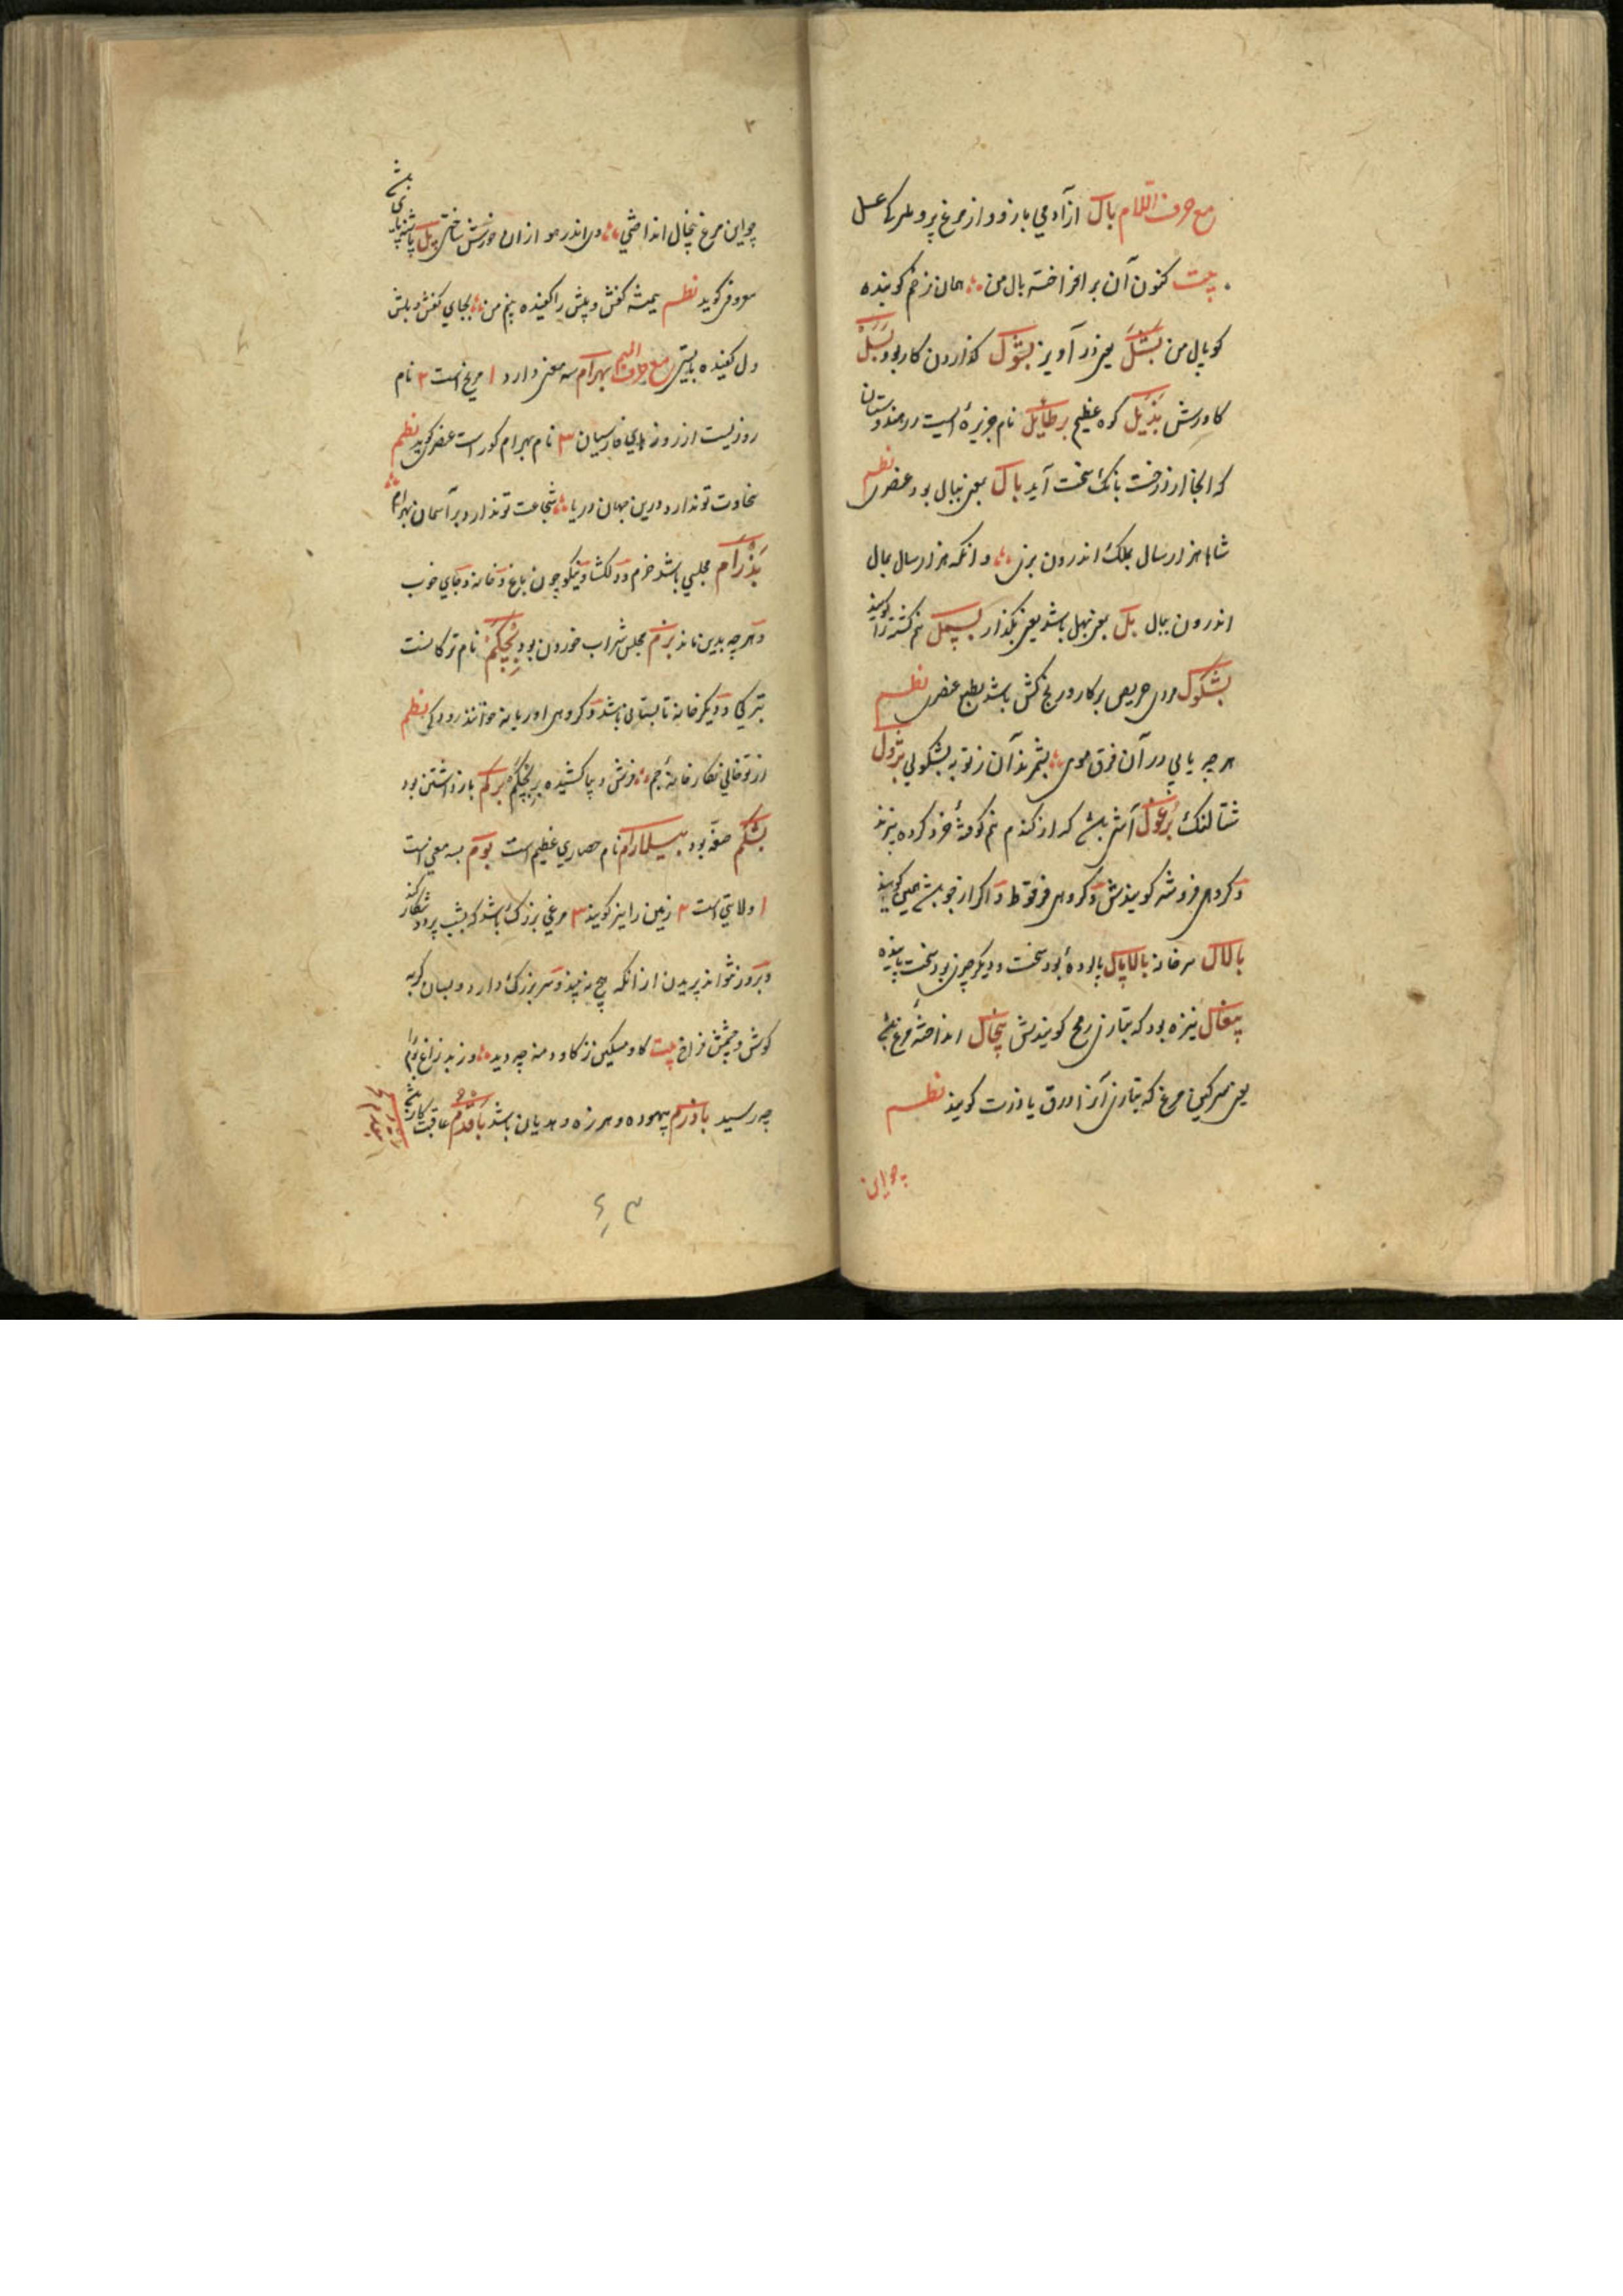 مع حرف اللام بال از آدمی بازو و از مرغ پر و
بیت کنون آن بر افراخته بال من همان زخم کوبنده
کوپال من بشکل یعنی در آویز بشول کذاردن کار بود بسل
کاورش بذیل کوه عظیم برطایل نام جزیره ایست در هندوستان
که آنجا از درخت بانک سخت آید بال بمعنی ببال بود عنصری نظم
شاها هزار سال بملک اندرون بزی و انکه هزار سال بناز
اندرون ببال بل بمعنی بهل باشد یعنی بکذار بسمل نیم کشته را کویند
بشکول مردی حریص بر کار و رنج کش باشد بطبع عنصری نظم
هر چه یابی در آن فرق موی بشمرند آن ز تو به بشکولی بژول
شتالنک برغول آشی باشد که از کندم نیم کوفته خرد کرده پزند
و کروهی فروشه کویندش و کروهی
بالال سرخانه بالاپال پالوده بود سخت و دیکر چیزی بود سخت پاینده
پیغال نیزه بود که بتازی رمح کویندش پیخال انداخته مرغ باشد
یعنی سرکین مرغ که بتازی آنرا ذرق یا ذرت کویند نظم
چو این
۲
چو این مرغ پیخال انداختی وی اندر هوا زان خورش ساختی پل پاشنه پای باشد
معروفی کوید نظم همیشه کفش و پلش را کفیده بینم من بجای کفش و پلش
دل کفیده بایستی مع حرف المیم بهرام سه معنی دارد ۱ مریخ است ۲ نام
روزیست از روزهای فارسیان ۳ نام بهرام کور است عنصری کوید نظم
سخاوت تو ندارد درین جهان دریا شجاعت تو ندارد بر آسمان بهرام
بذرام مجلسی باشد خرم و دلکشا و نیکو چون باغ و خانه و جای خوب
و هر چه بدین ماند بزم مجلس شراب خوردن بود بچکم نام ترکانست
بترکی و دیکر خانه تابستانی باشد و کروهی او را بانه خوانند رودکی نظم
از تو خالی نکارخانه جم فرش دیبا کشیده بر بجکم برکم باز داشتن بود
بشکم صفه بود بیلارام نام حصاری عظیم است بوم بسه معنی است
۱ ولایتی است ۲ زمین را نیز کویند ۳ مرغی بزرک باشد که بشب پرد و شکار کند
و بروز نتواند پریدن از آنکه هیچ نه بیند و سر بزرک دارد و بسان کربه
کوش و چشمش فراخ بیت کاو مسکین ز کاو دمنه چه دید وز بد زاغ بوم را
چه رسید باذرم بیهوده و هرزه و هذیان باشد بافدم عاقبت کار باشد